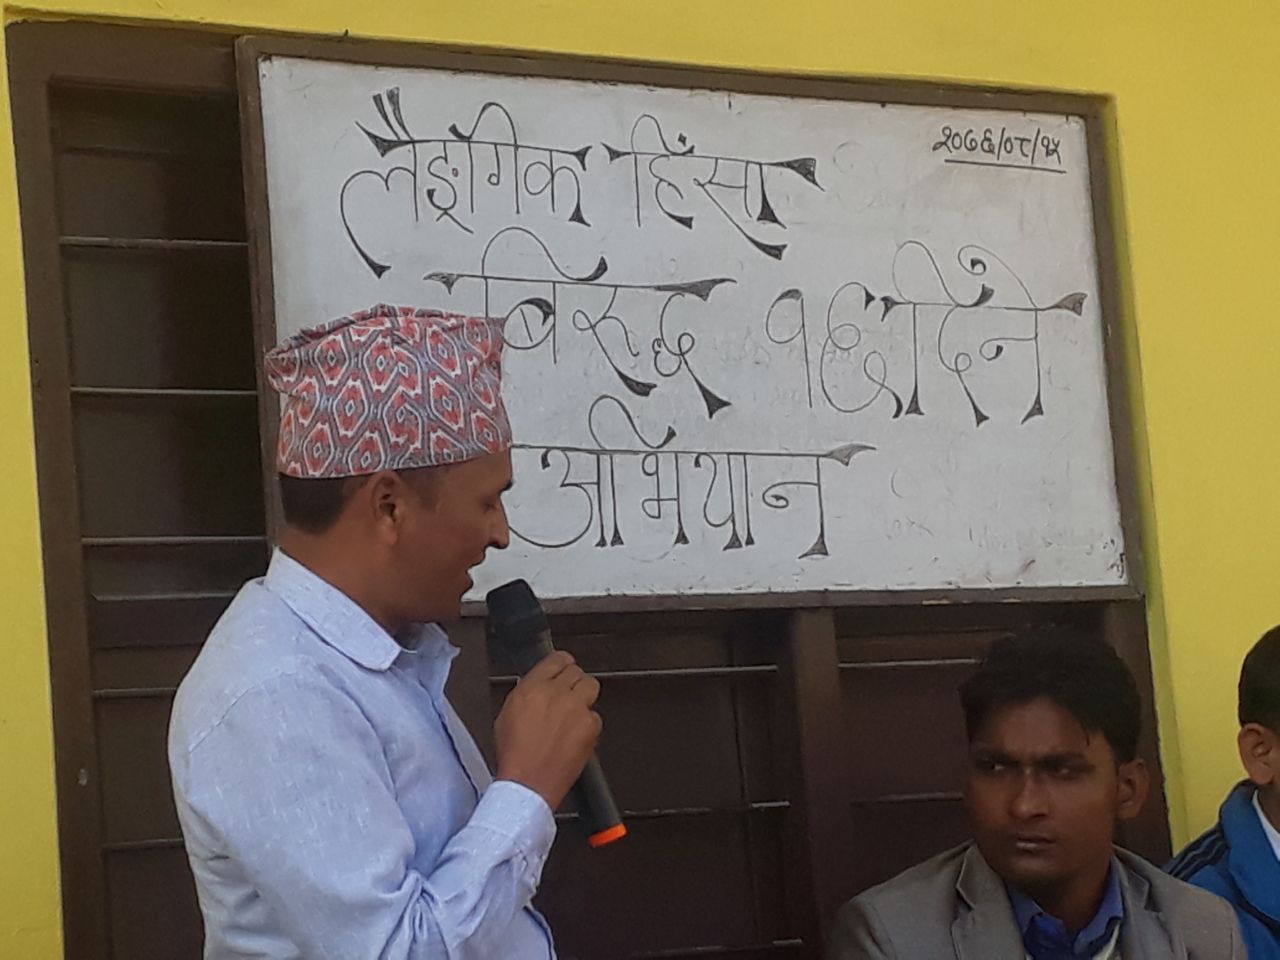 २०७६/०८/१५
लैङ्गिक हिंसा
बिरुद्ध १६ दिने
अभियान